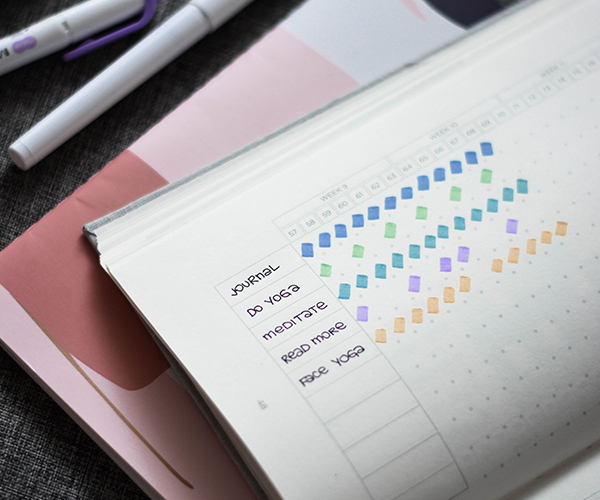 WEEK 9
WEEK 10
57 58 59 60 61 62 63 64 65 66 67 68 69 70
JOURNAL
DO YOGA
MEDITATE
READ MORE
FACE YOGA